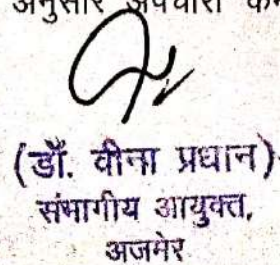 अनुसार अपचारी
(डॉ. वीना प्रधान)
संभागीय आयुक्त,
अजमेर